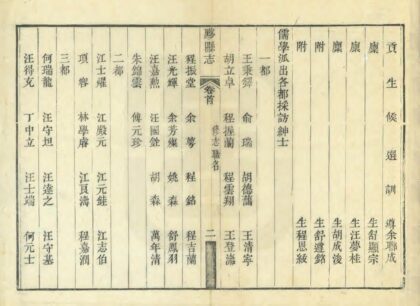 貢生候選訓導余聯成
廩生舒顯宗
廩生汪夢桂
廩生胡成浚
附生舒遵銘
附生程恩綬
儒學派出各都採訪紳士
一都
王秉鐸 俞瑞 胡德蘭 王清寧
胡立卓 程握蘭 程雲翔 王登瀛
黟縣志 卷首 修志職名 二
程振堂 余蕚 程銘 程吉蘭
汪光輝 余芳燦 姚森 舒鳳羽
汪嘉勲 汪國銓 胡森 萬年清
朱錦雲 傅元珍
二都
江士燿 江殿元 江元鉎 江志伯
項容 林學睿 江貢濤 程嘉潤
三都
何瑞龍 汪守坦 汪達之 汪守基
汪得克 丁申立 汪士端 何元士